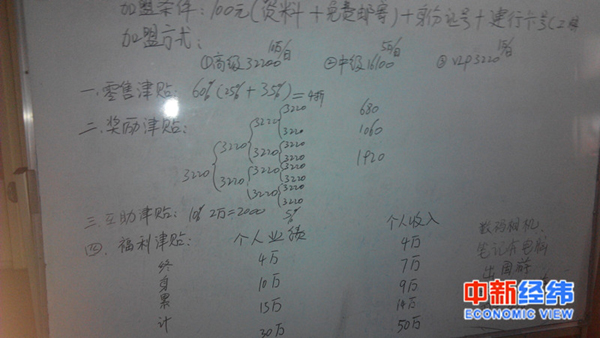 加盟条件:100元(资料+免费邮寄)+身份证号+建行卡号(
加盟方式:
①高级32200 ②中级16100 ③vzp3220
一.零售津贴:60%(25%+35%)=
二.奖励津贴:
3220 3220 3220 3220 680
3220 1060
3220 3220
3220
3220 3220 3220 1920
3220
3220 3220
3220
三.互助津贴:10% 2万=2000 5%
四.福利津贴: 个人业绩 个人收入 数码相机、
终 4万 4万 笔记本电脑
身 10万 7万 出国游
累 15万 9万
计 30万 14万
50万
中新经纬
ECONOMIC VIEW